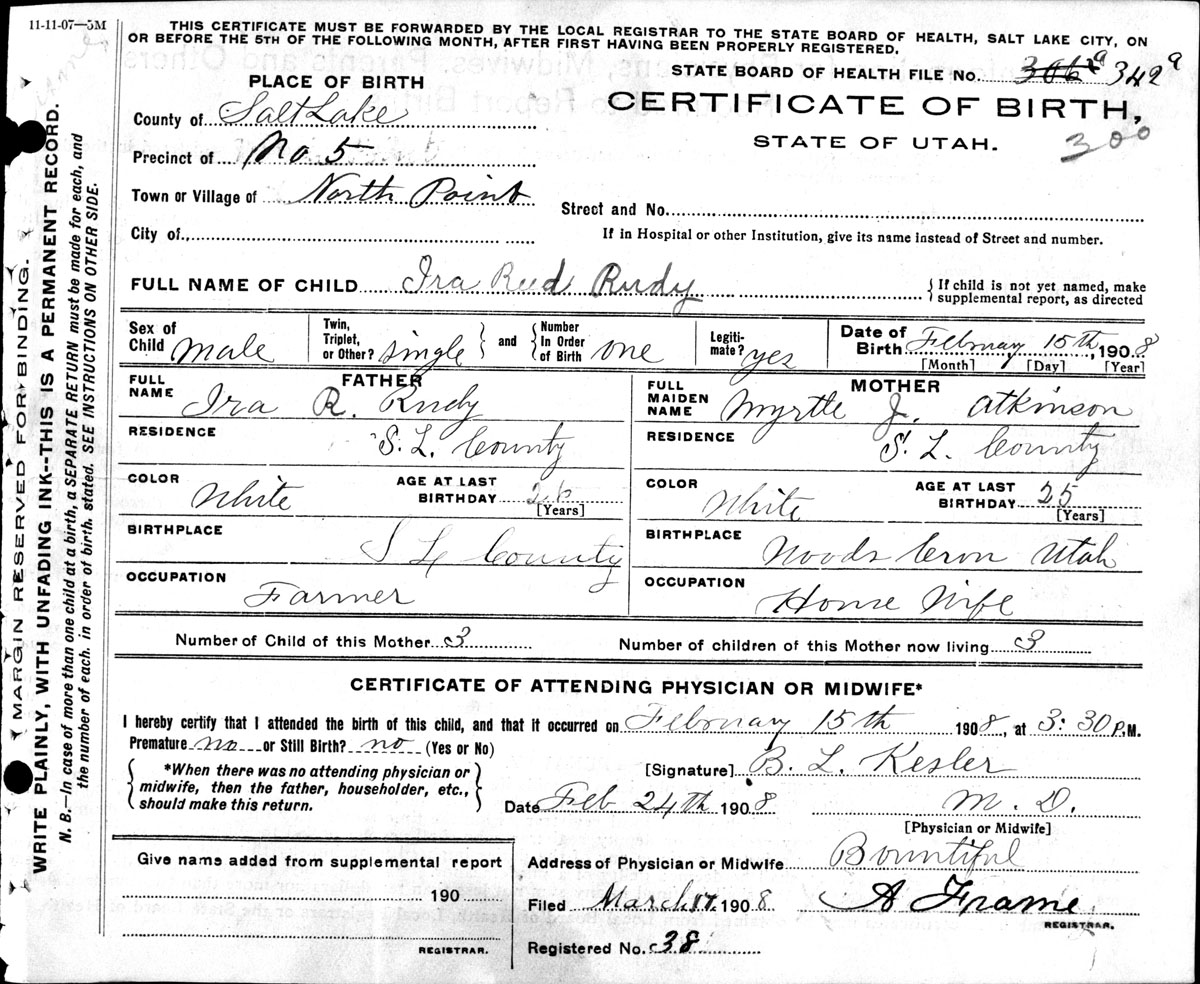 11-11-07—5M
THIS CERTIFICATE MUST BE FORWARDED BY THE LOCAL REGISTRAR TO THE STATE BOARD OF HEALTH, SALT LAKE CITY, ON
OR BEFORE THE 5TH OF THE FOLLOWING MONTH, AFTER FIRST HAVING BEEN PROPERLY REGISTERED.
MARGIN RESERVED FOR BINDING.
WRITE PLAINLY, WITH UNFADING INK--THIS IS A PERMANENT RECORD.
N. B.—In case of more than one child at a birth, a SEPARATE RETURN must be made for each, and
the number of each, in order of birth, stated. SEE INSTRUCTIONS ON OTHER SIDE.
PLACE OF BIRTH
STATE BOARD OF HEALTH FILE No. 342a
CERTIFICATE OF BIRTH,
STATE OF UTAH.
300
County of Salt Lake
Precinct of No 5
Town or Village of North Point
Street and No.
City of
If in Hospital or other Institution, give its name instead of Street and number.
FULL NAME OF CHILD Ira Reed Rudy
{If child is not yet named, make
supplemental report, as directed
Sex of Child male
Twin, Triplet, or Other? single } and { Number In Order of Birth one
Legiti-mate? yes
Date of Birth February 15th, 1908
[Month] [Day] [Year]
FATHER
FULL NAME Ira R. Rudy
RESIDENCE S. L. County
COLOR White
AGE AT LAST BIRTHDAY 26
[Years]
BIRTHPLACE S L County
OCCUPATION Farmer
MOTHER
FULL MAIDEN NAME Myrtle J. Atkinson
RESIDENCE S. L. County
COLOR White
AGE AT LAST BIRTHDAY 25
[Years]
BIRTHPLACE Woods Cron Utah
OCCUPATION House Wife
Number of Child of this Mother 3 Number of children of this Mother now living 3
CERTIFICATE OF ATTENDING PHYSICIAN OR MIDWIFE*
I hereby certify that I attended the birth of this child, and that it occurred on February 15th 1908, at 3:30 P.M.
Premature no or Still Birth? no (Yes or No)
{ *When there was no attending physician or
midwife, then the father, householder, etc.,
should make this return. }
[Signature] B. L. Kesler
Date Feb 24th 1908 M. D.
[Physician or Midwife]
Give name added from supplemental report
190
REGISTRAR.
Address of Physician or Midwife Bountiful
Filed March 17. 1908 A Frame
REGISTRAR.
Registered No. 38